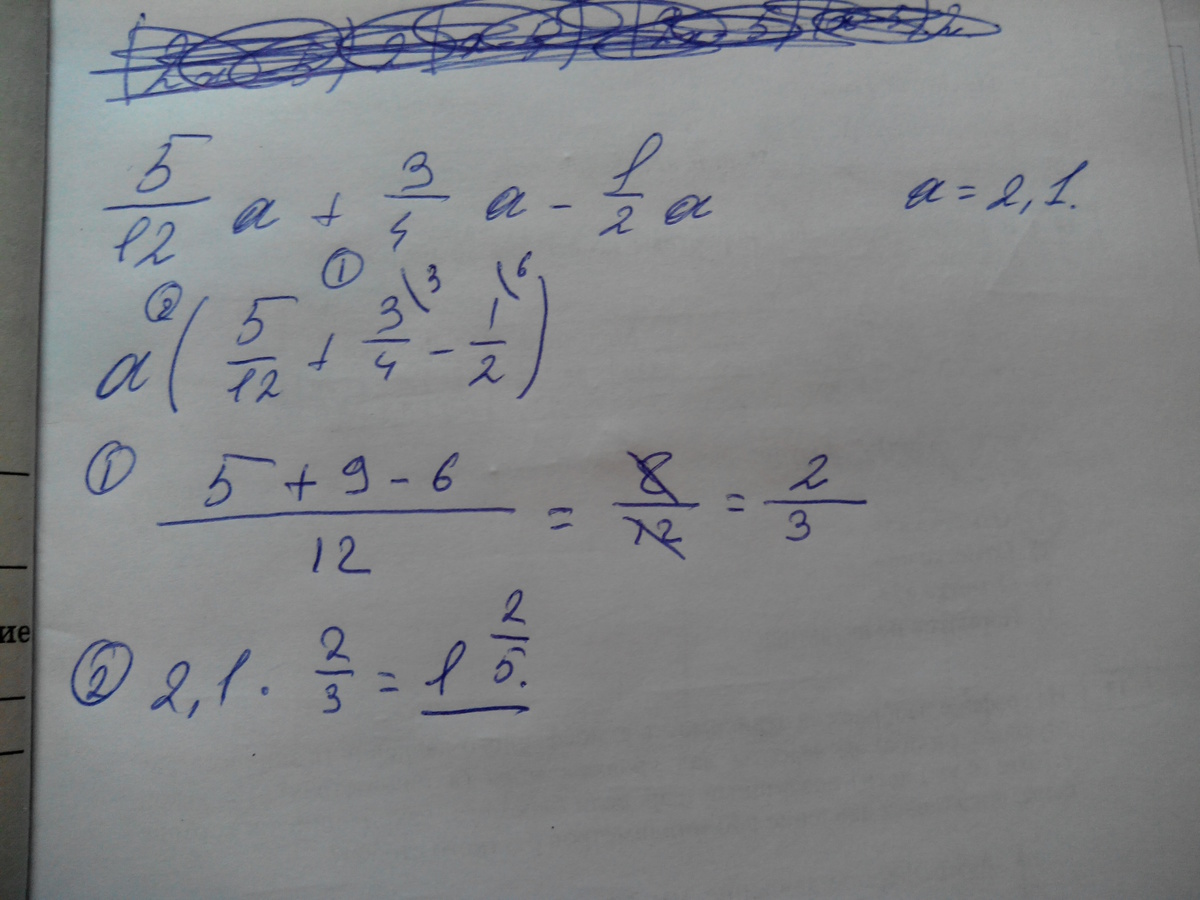 5/12 a + 3/4 a - 1/2 a a = 2,1.
② ①
a ( 5/12 + 3/4 \3 - 1/2 \6 )
① (5 + 9 - 6)/12 = 8/12 = 2/3
② 2,1 · 2/3 = 1 2/5.
ие